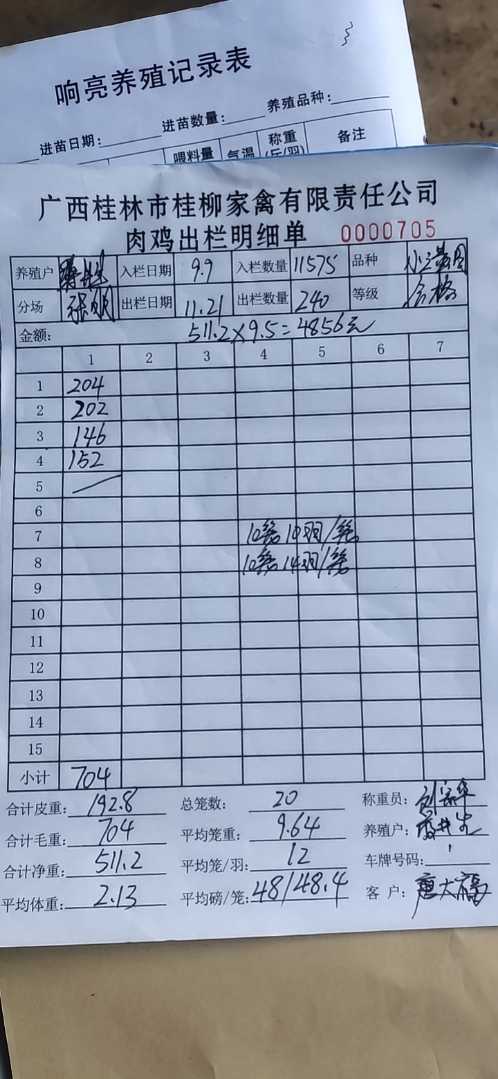 响亮养殖记录表
进苗日期: 进苗数量: 养殖品种:
喂料量 气温 称重(斤/羽) 备注
广西桂林市桂柳家禽有限责任公司
肉鸡出栏明细单 0000705
养殖户 入栏日期 9.9 入栏数量 11575 品种
分场 张明 出栏日期 11.21 出栏数量 240 等级 合格
金额: 511.2×9.5=4856元
1 2 3 4 5 6 7
1 204
2 202
3 146
4 152
5
6
7 10笼 10羽/笼
8 10笼 14羽/笼
9
10
11
12
13
14
15
小计 704
合计皮重: 192.8 总笼数: 20 称重员:
合计毛重: 704 平均笼重: 9.64 养殖户:
合计净重: 511.2 平均笼/羽: 12 车牌号码:
平均体重: 2.13 平均磅/笼: 48/48.4 客户: 唐大福